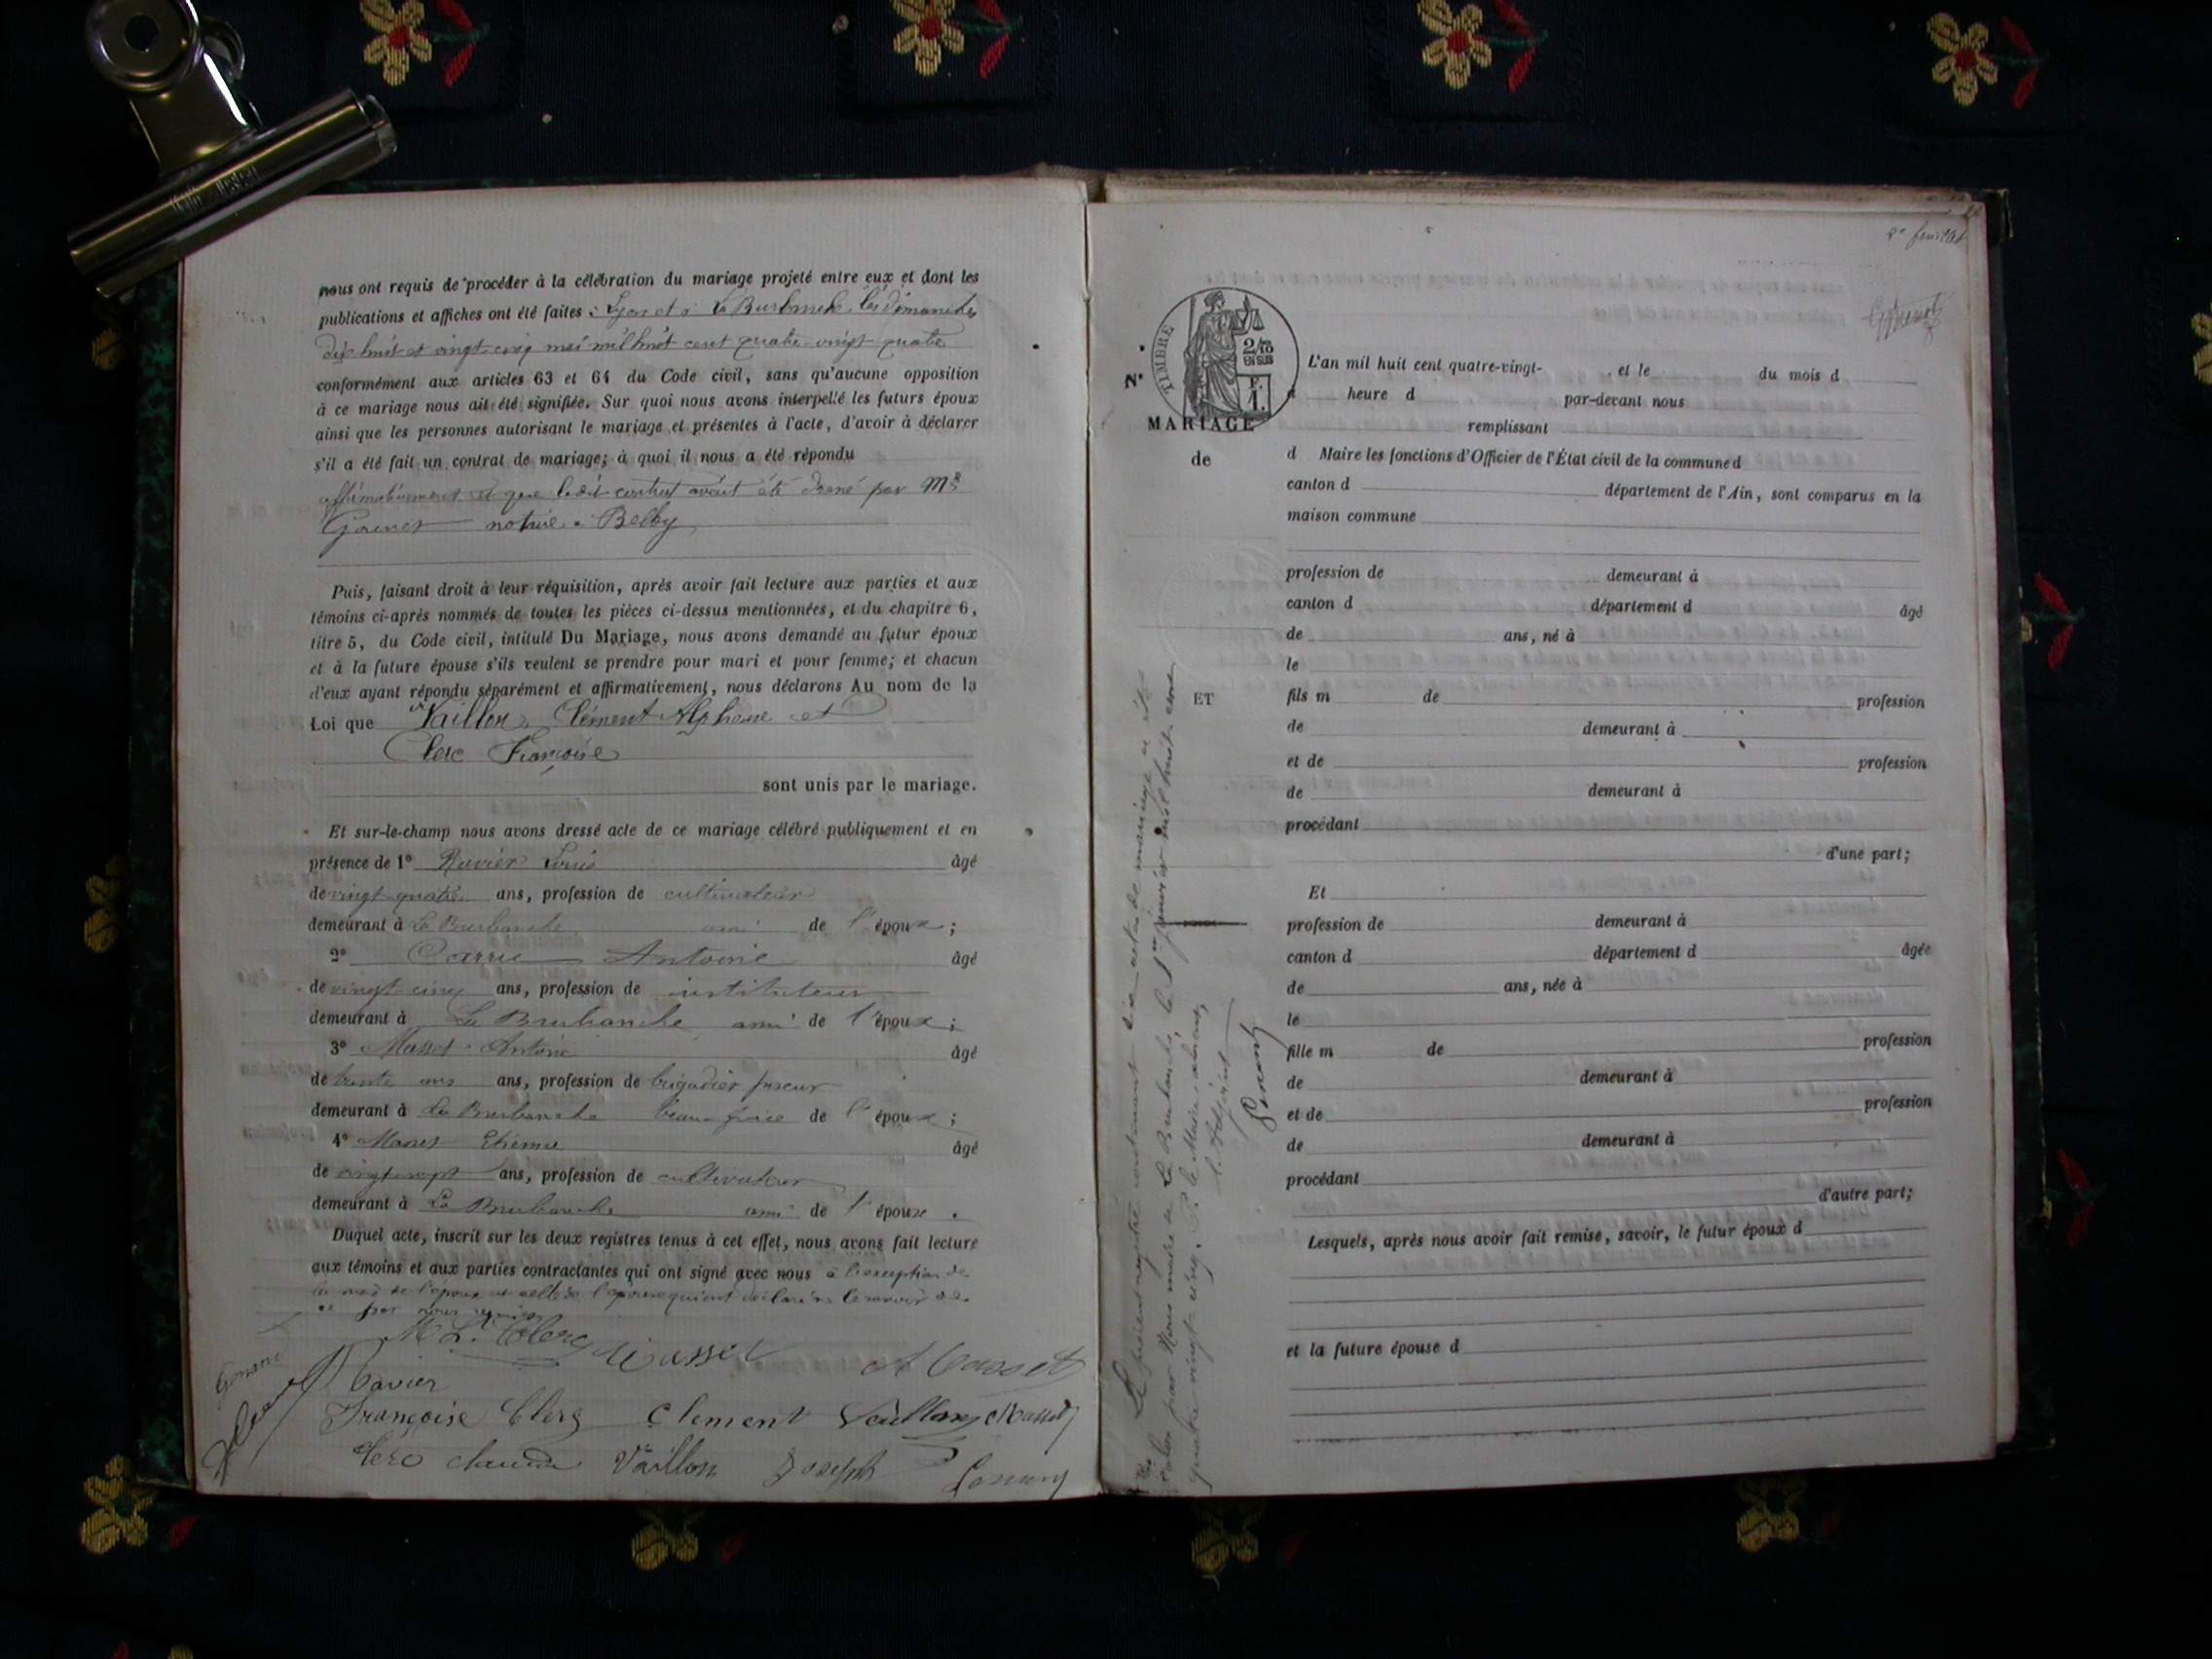 nous ont requis de procéder à la célébration du mariage projeté entre eux et dont les
publications et affiches ont été faites à Lyon et à La Burbanche les dimanches
dix huit et vingt-cinq mai mil huit cent quatre-vingt quatre
conformément aux articles 63 et 64 du Code civil, sans qu'aucune opposition
à ce mariage nous ait été signifiée. Sur quoi nous avons interpellé les futurs époux
ainsi que les personnes autorisant le mariage et présentes à l'acte, d'avoir à déclarer
s'il a été fait un contrat de mariage; à quoi il nous a été répondu
affirmativement et que ledit contrat avait été donné par Me
notaire à Belley
Puis, faisant droit à leur réquisition, après avoir fait lecture aux parties et aux
témoins ci-après nommés de toutes les pièces ci-dessus mentionnées, et du chapitre 6,
titre 5, du Code civil, intitulé Du Mariage, nous avons demandé au futur époux
et à la future épouse s'ils veulent se prendre pour mari et pour femme; et chacun
d'eux ayant répondu séparément et affirmativement, nous déclarons Au nom de la
Loi que Vaillon Clément Alphonse et
Clerc Françoise
sont unis par le mariage.
Et sur-le-champ nous avons dressé acte de ce mariage célébré publiquement et en
présence de 1° Ravier Louis âgé
de vingt quatre ans, profession de cultivateur
demeurant à La Burbanche ami de l'époux;
2° Carrie Antoine âgé
de vingt cinq ans, profession de instituteur
demeurant à La Burbanche ami de l'époux;
3° Masset Antoine âgé
de trente ans ans, profession de brigadier poseur
demeurant à La Burbanche beau-frère de l'époux;
4° Masset Etienne âgé
de vingt sept ans, profession de cultivateur
demeurant à La Burbanche ami de l'époux.
Duquel acte, inscrit sur les deux registres tenus à cet effet, nous avons fait lecture
aux témoins et aux parties contractantes qui ont signé avec nous à l'exception de
la mère de l'époux et celle de l'épouse qui ont déclaré ne le savoir de
ce par nous requises
M L. Clerc Masset A Masset
Ravier
Françoise Clerc Clement Vaillon Masset
Clerc claude Vaillon Joseph
2e feuillet
TIMBRE
2/10
EN SUS
F.
1.
N°
MARIAGE
de
ET
L'an mil huit cent quatre-vingt- , et le du mois d
à heure d par-devant nous
remplissant
d Maire les fonctions d'Officier de l'État civil de la commune d
canton d département de l'Ain, sont comparus en la
maison commune
profession de demeurant à
canton d département d âgé
de ans, né à
le
fils m de profession
de demeurant à
et de profession
de demeurant à
procédant
d'une part;
Et
profession de demeurant à
canton d département d âgée
de ans, née à
le
fille m de profession
de demeurant à
et de profession
de demeurant à
procédant
d'autre part;
Lesquels, après nous avoir fait remise, savoir, le futur époux d
et la future épouse d
Le présent registre contenant six actes de mariage a été
clos par Nous maire de La Burbanche le 1er janvier mil huit cent
quatre vingt cinq. P. le Maire absent,
l'Adjoint